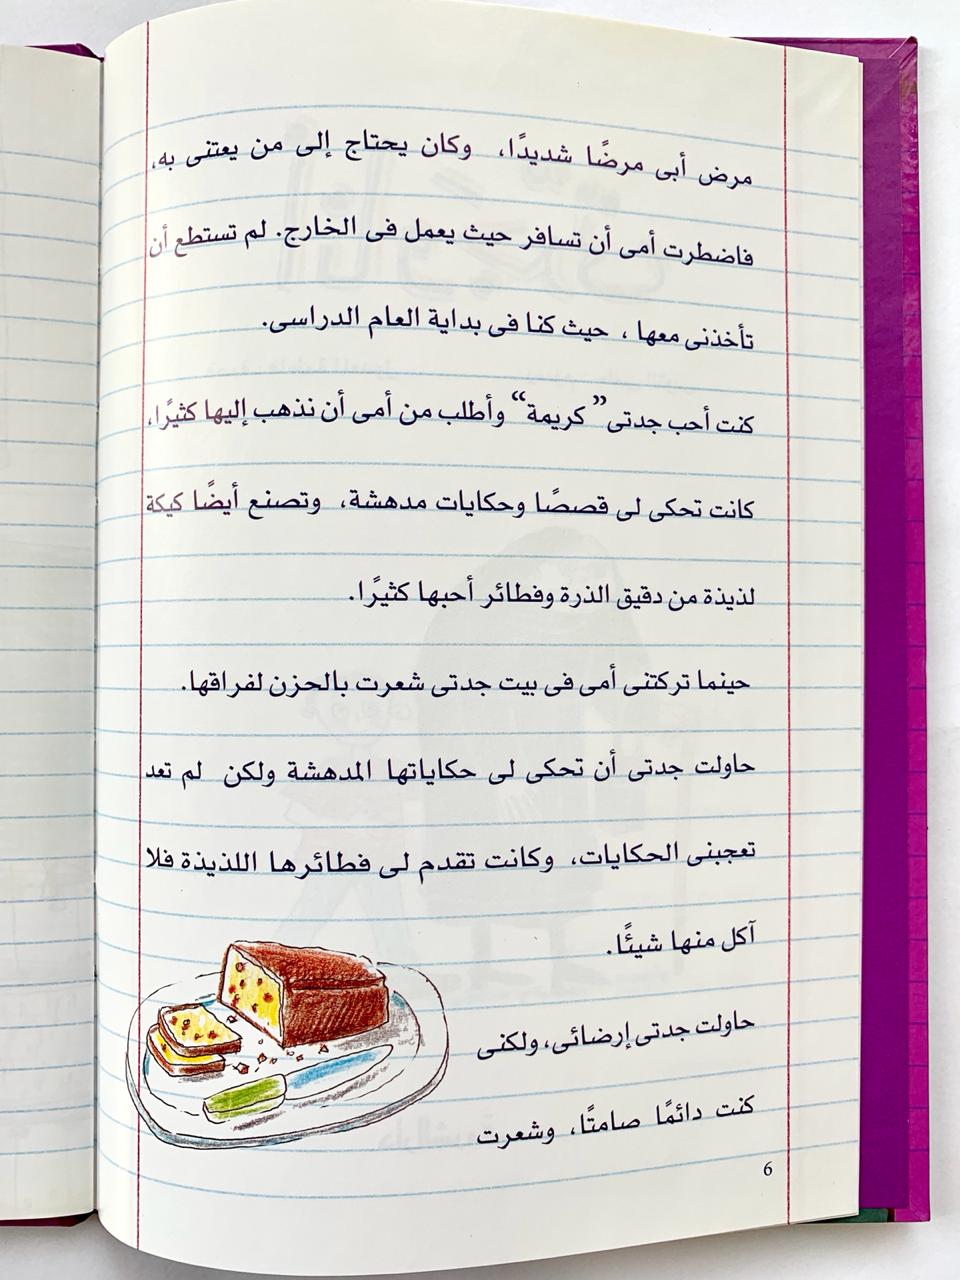 مرض أبى مرضًا شديدًا، وكان يحتاج إلى من يعتنى به،
فاضطرت أمى أن تسافر حيث يعمل فى الخارج. لم تستطع أن
تأخذنى معها ، حيث كنا فى بداية العام الدراسى.
كنت أحب جدتى” كريمة“ وأطلب من أمى أن نذهب إليها كثيرًا،
كانت تحكى لى قصصًا وحكايات مدهشة، وتصنع أيضًا كيكة
لذيذة من دقيق الذرة وفطائر أحبها كثيرًا.
حينما تركتنى أمى فى بيت جدتى شعرت بالحزن لفراقها.
حاولت جدتى أن تحكى لى حكاياتها المدهشة ولكن لم تعد
تعجبنى الحكايات، وكانت تقدم لى فطائرها اللذيذة فلا
آكل منها شيئًا.
حاولت جدتى إرضائى، ولكنى
كنت دائمًا صامتًا، وشعرت
6